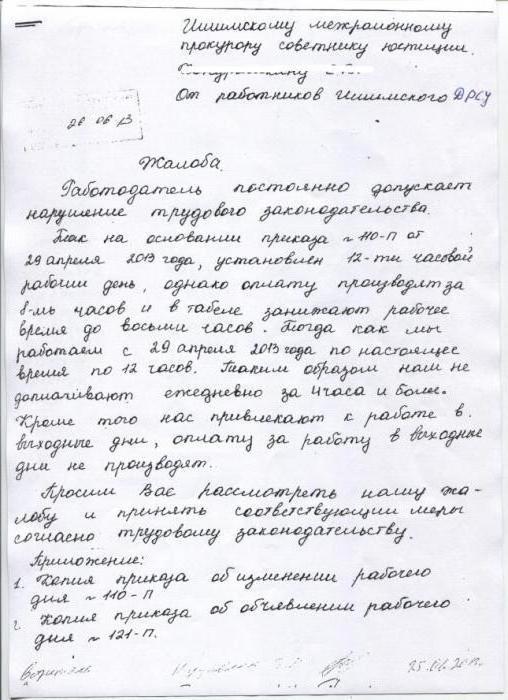 Ишимскому межрайонному
прокурору советнику юстиции.
От работников Ишимского ДРСУ
26 06 13
Жалоба.
Работодатель постоянно допускает
нарушение трудового законодательства.
Так на основании приказа ~ 110-П от
29 апреля 2013 года, установлен 12-ти часовой
рабочий день, однако оплату производят за
8-мь часов и в табеле занижают рабочее
время до восьми часов. Тогда как мы
работаем с 29 апреля 2013 года по настоящее
время по 12 часов. Таким образом нам не
доплачивают ежедневно за 4 часа и более.
Кроме того нас привлекают к работе в.
выходные дни, оплату за работу в выходные
дни не производят.
Просим Вас рассмотреть нашу жа-
лобу и принять соответствующии меры
согласно трудовому законодательству.
Приложение:
1. Копия приказа об изменении рабочего
дня ~ 110-П
2. Копия приказа об объявлении рабочего
дня ~ 121-П.